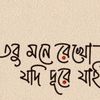 তবু মনে রেখো—
যদি দূরে যাই